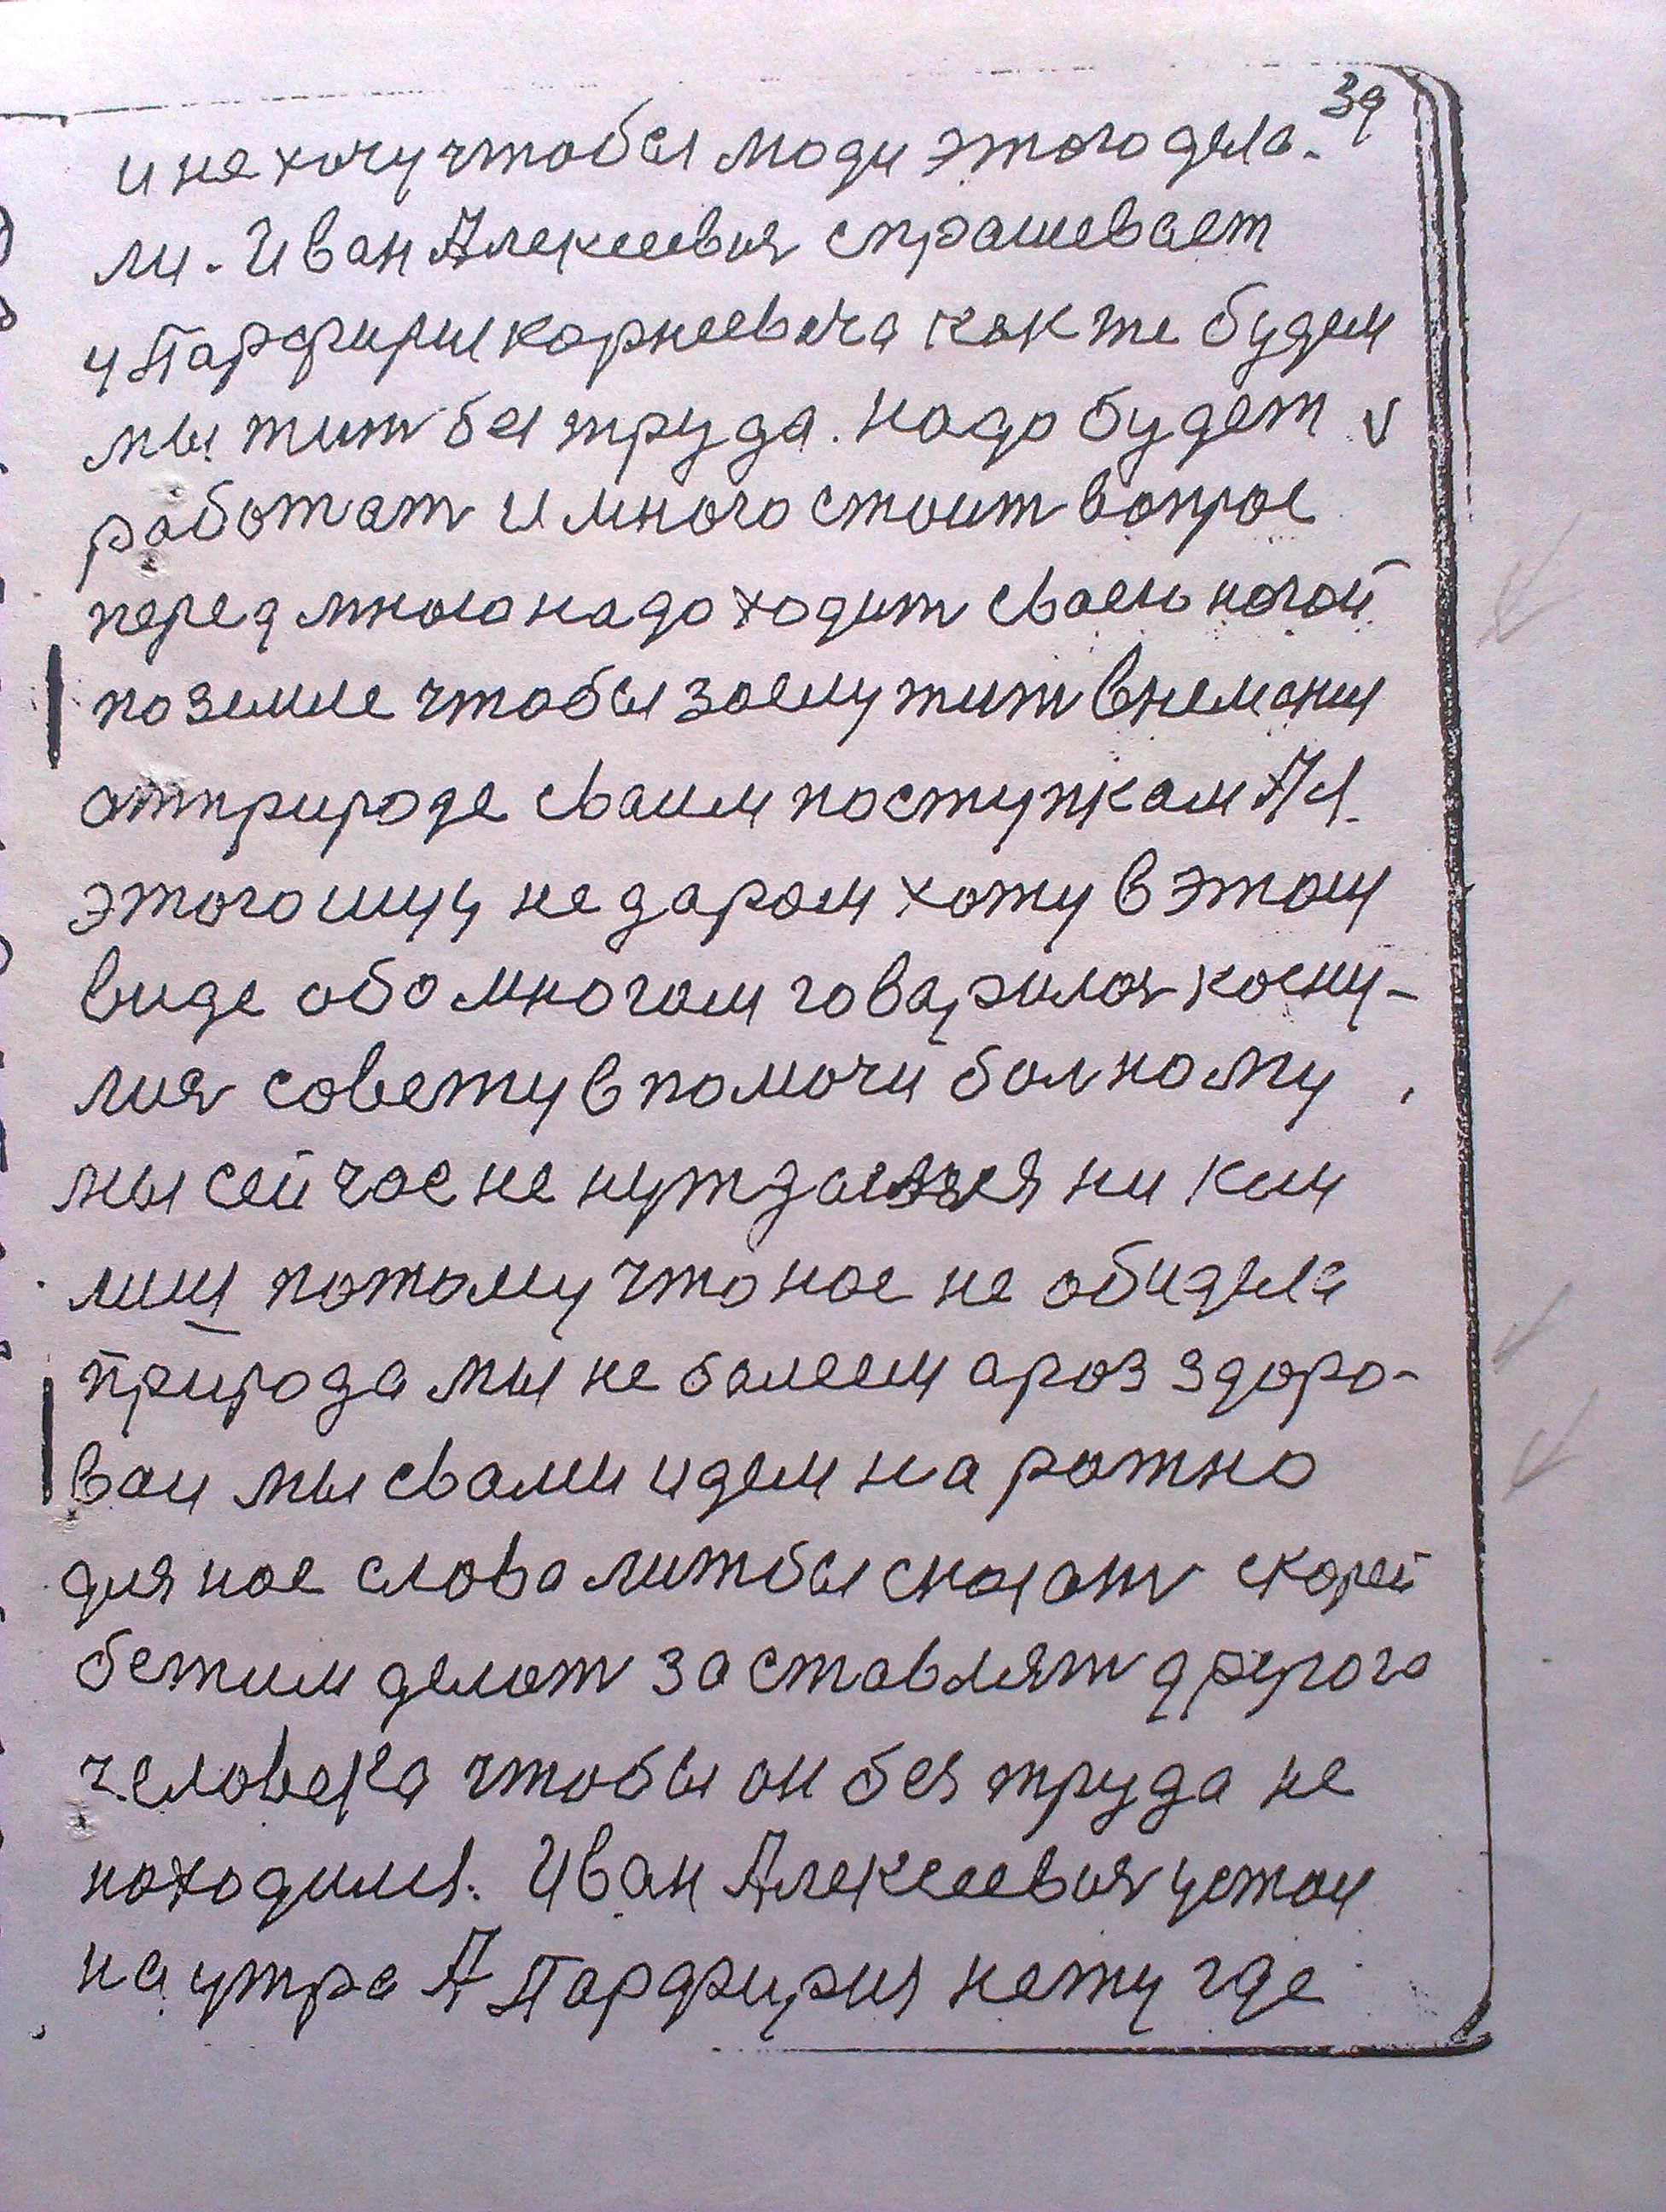 39
и не хочу чтобы люди этого дела-
ли. Иван Алексеевич спрашевает
у Парфирия корнеевича как же будем
мы жит без труда. надо будет
работат и много стоит вопрос
перед мною надо ходит сваею ногой
по земле чтобы заслужит внемания
от природе сваим поступкам А я
этого ищу недаром хожу в этом
виде обо многом говорился косну-
лся совету в помочи болному
мы сейчас не нуждаемся ни ким
лиш потому что нас не обидела
природа мы не болеем а раз здоро-
вы мы свами идем на
для нас слова лиш бы сказат скорей
бежим делат заставлят другого
человека чтобы он без труда не
находился. Иван Алексеевич устал
на утра А Парфирия нету где